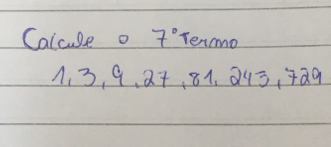 Calcule o 7° Termo
1, 3, 9, 27, 81, 243, 729